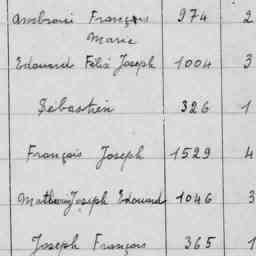 Ambroise François 974 2
Marie
Edouard Félix Joseph 1004 3
Sébastien 326 1
François Joseph 1529 4
Mathieu Joseph Edouard 1046 3
Joseph François 365 1